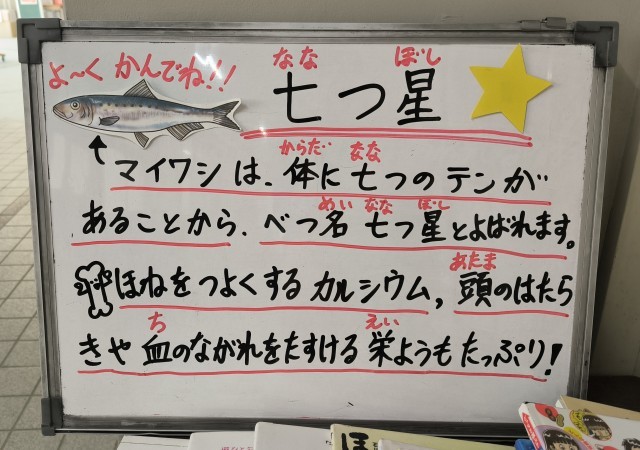 よ〜くかんでね!!
なな ぼし
七つ星
からだ なな
マイワシは、体に七つのテンが
めい なな ぼし
あることから、べつ名 七つ星とよばれます。
あたま
ほねをつよくするカルシウム, 頭のはたら
ち えい
きや 血のながれをたすける 栄ようもたっぷり!